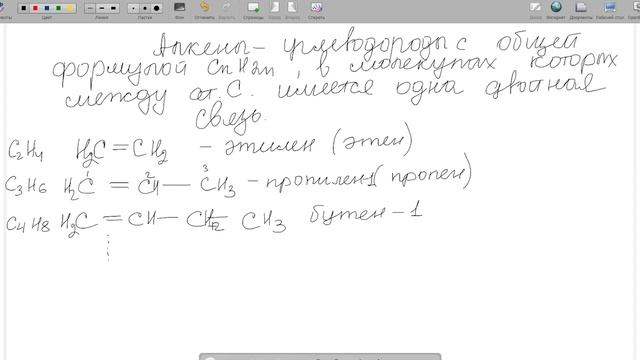 Линия
Ластик
Отменить
Вернуть
Страницы
Назад
Стереть
Экран
Интернет
Документы
Рабочий стол
Алкены – углеводороды с общей
формулой CnH2n, в молекулах которых
между ат. С. имеется одна двойная
связь.
C2H4 H2C = CH2 – этилен (этен)
1 2 3
C3H6 H2C = CH — CH3 – пропилен1 (пропен)
C4H8 H2C = CH — CH2 CH3 бутен – 1